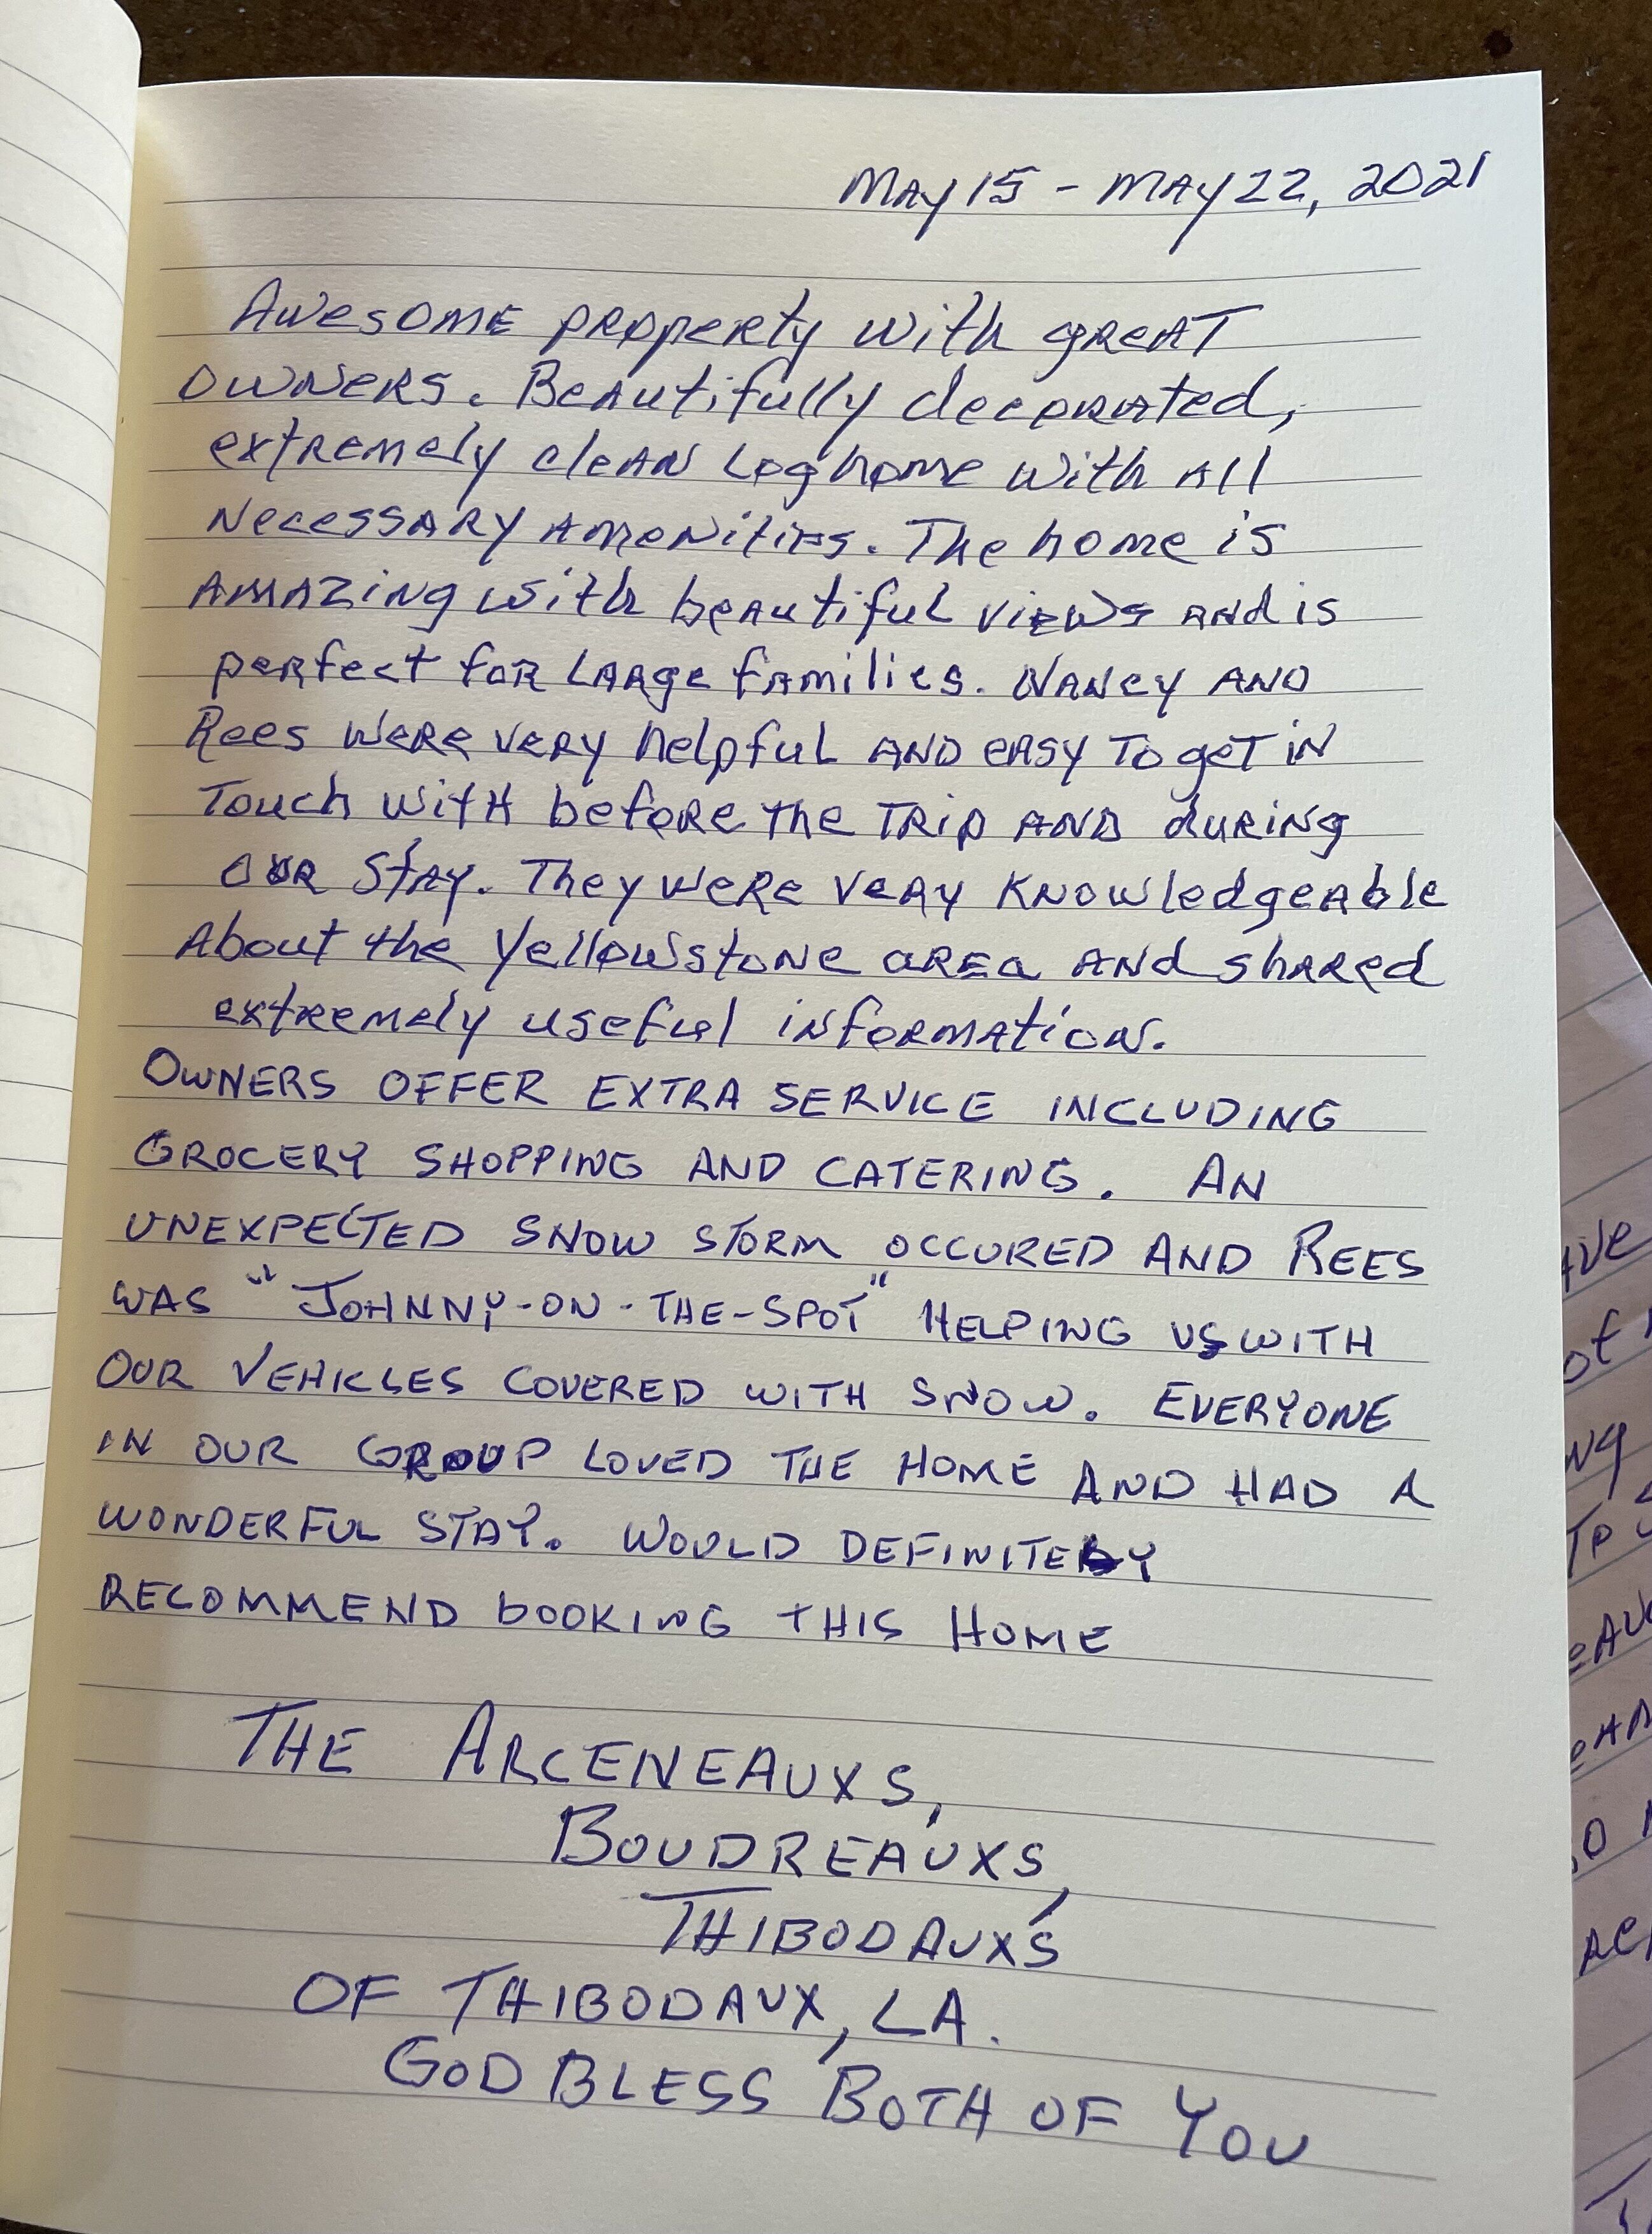 May 15 - May 22, 2021
Awesome property with great
owners. Beautifully decorated,
extremely clean Log home with all
necessary amenities. The home is
amazing with beautiful views and is
perfect for large families. Nancy and
Rees were very helpful and easy to get in
touch with before the trip and during
our stay. They were very knowledgeable
about the Yellowstone area and shared
extremely useful information.
OWNERS OFFER EXTRA SERVICE INCLUDING
GROCERY SHOPPING AND CATERING. AN
UNEXPECTED SNOW STORM OCCURED AND REES
WAS "JOHNNY-ON-THE-SPOT" HELPING US WITH
OUR VEHICLES COVERED WITH SNOW. EVERYONE
IN OUR GROUP LOVED THE HOME AND HAD A
WONDERFUL STAY. WOULD DEFINITELY
RECOMMEND BOOKING THIS HOME
THE ARCENEAUXS,
BOUDREAUXS,
THIBODAUX'S
OF THIBODAUX, LA.
GOD BLESS BOTH OF YOU